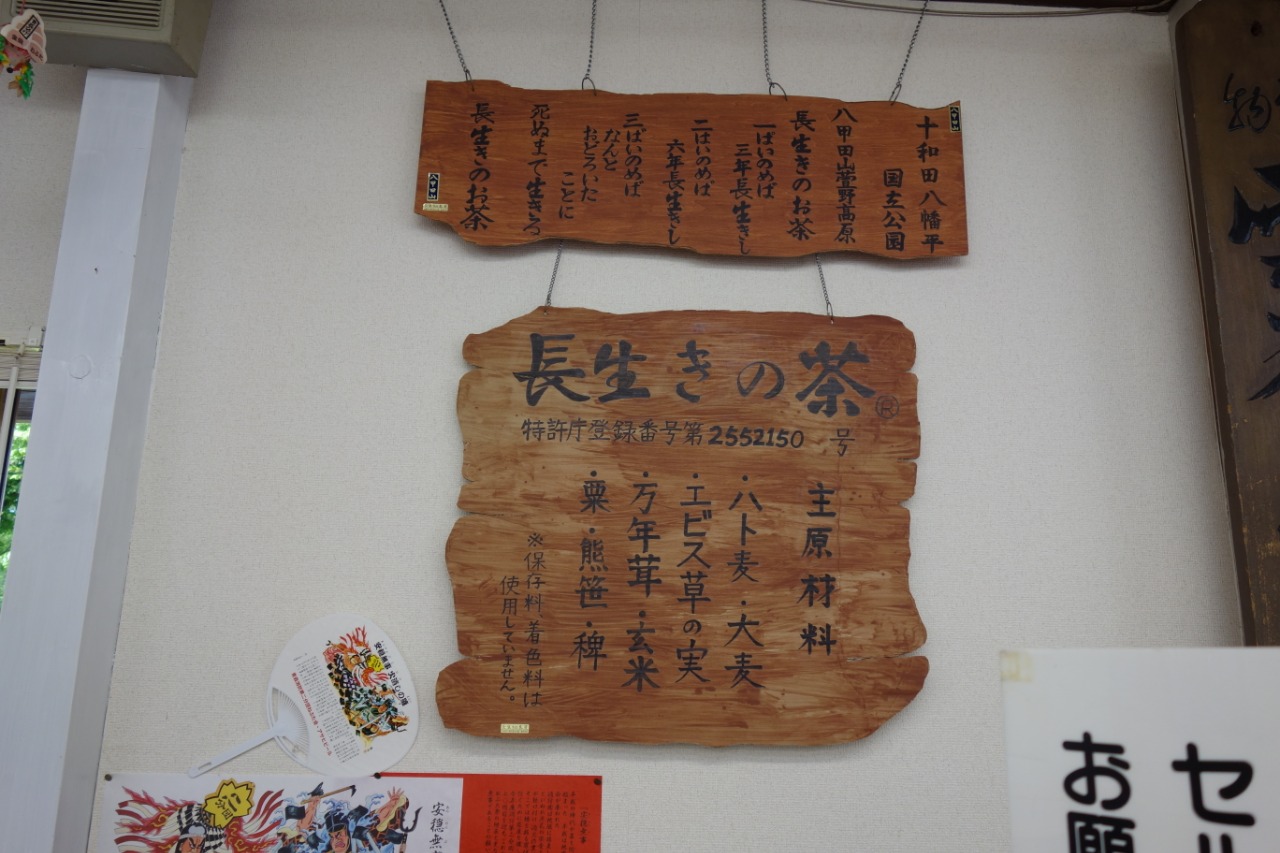 十和田八幡平
国立公園
八甲田山萱野高原
長生きのお茶
一ぱいのめば
三年長生きし
二はいのめば
六年長生きし
三ばいのめば
なんと
おどろいた
ことに
死ぬまで生きる
長生きのお茶
八甲田山
八甲田山
長生きの茶®
特許庁登録番号第2552150号
主原材料
・ハト麦・大麦
・エビス草の実
・万年茸・玄米
・粟・熊笹・稗
※保存料、着色料は
使用していません。
セル
お願
安穏無